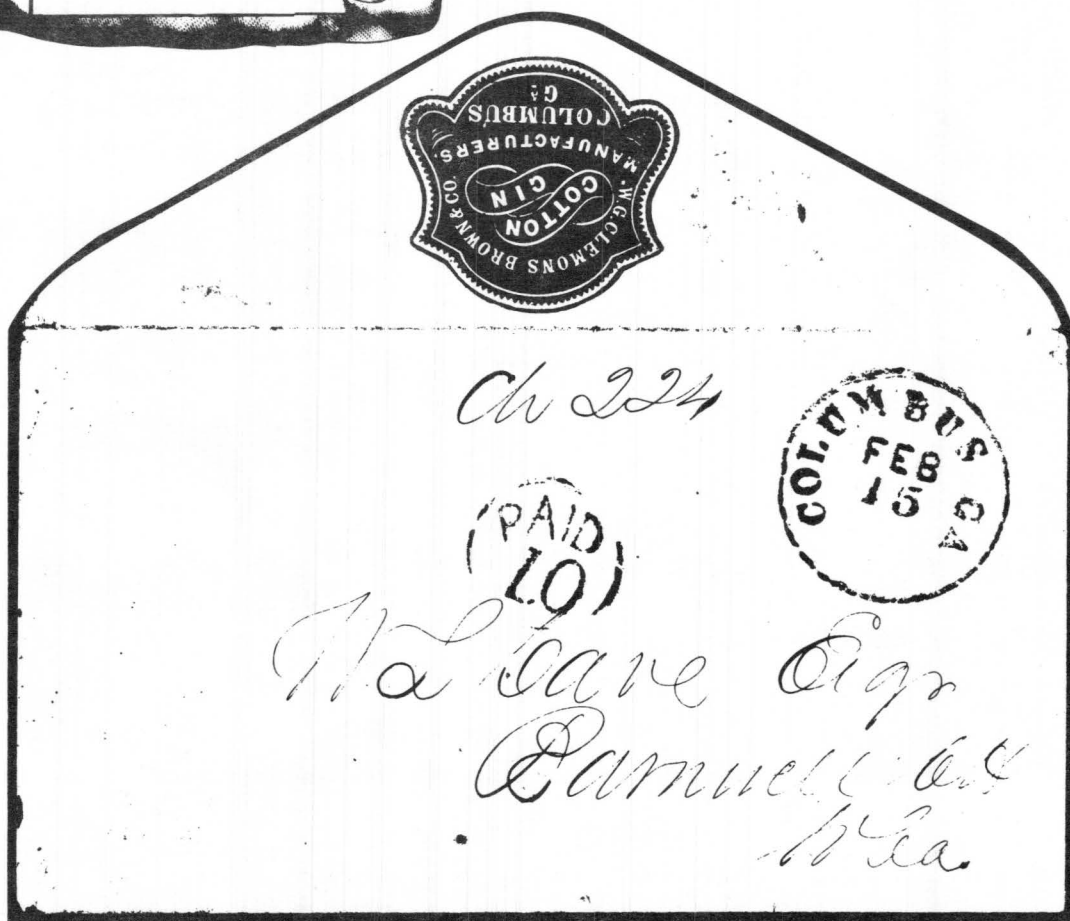 W.G.CLEMONS BROWN & CO.
COTTON
GIN
MANUFACTURERS.
COLUMBUS
GA
Ch 224
COLUMBUS GA
FEB
15
PAID
10
Cave Esqr
Barnwell